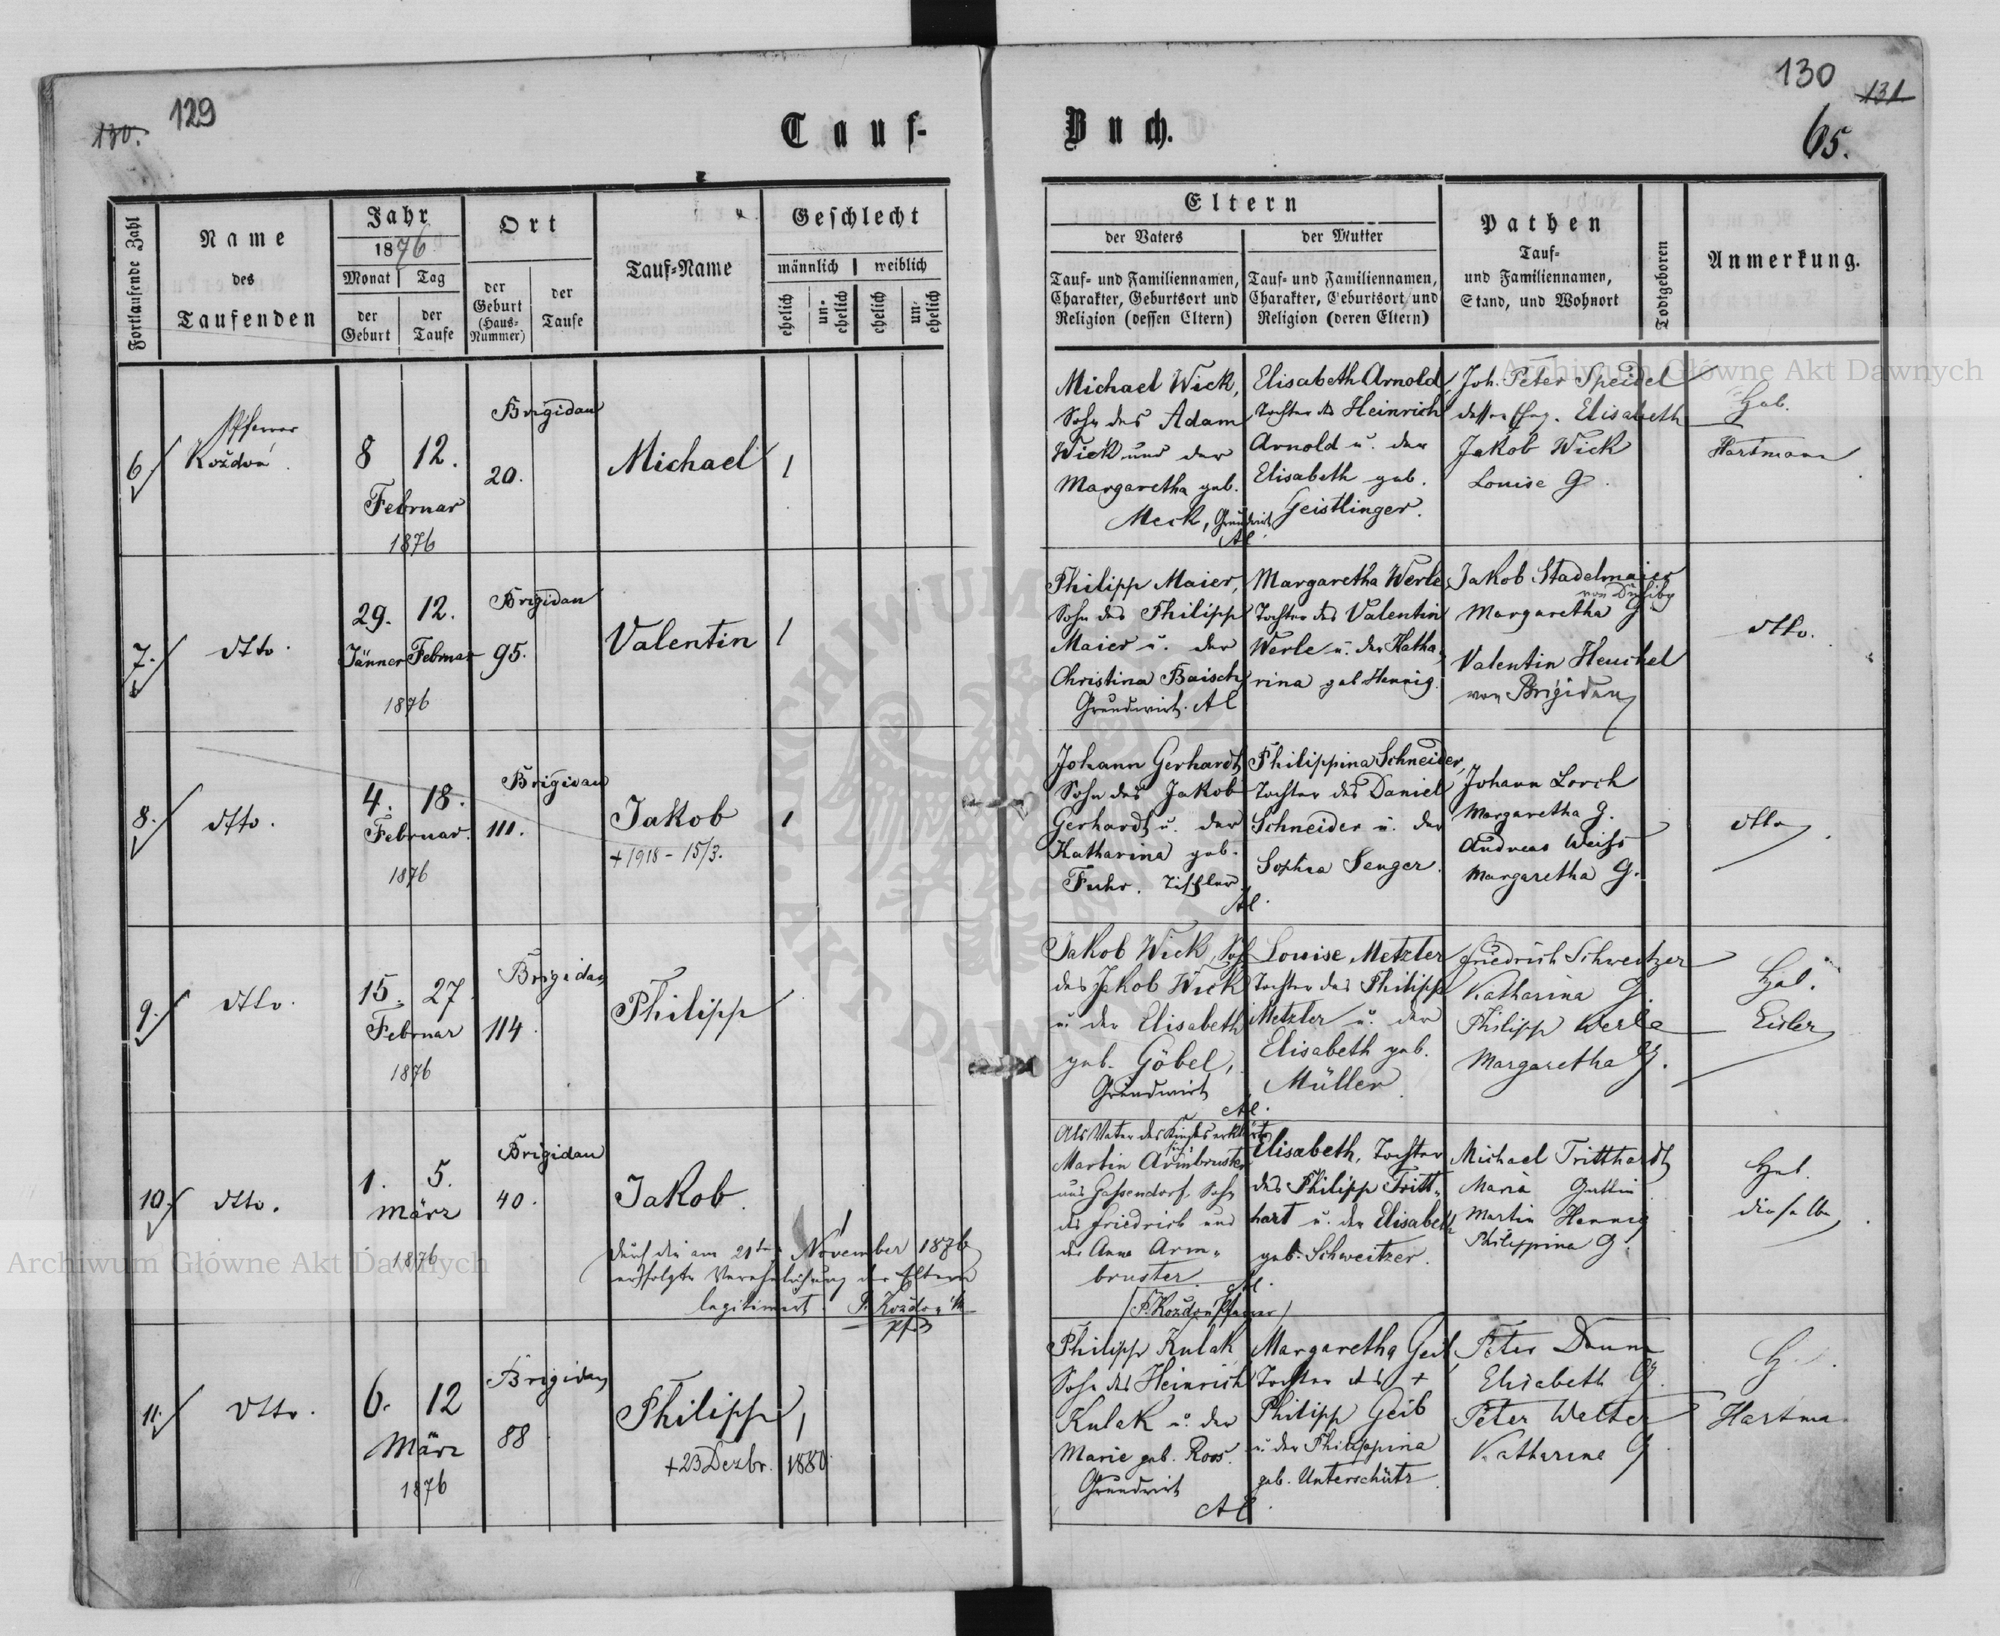 130.
129
130
131
65.
Tauf-
Buch.
Fortlaufende Zahl
Name
des
Taufenden
Jahr
1876
Monat
Tag
der
Geburt
der
Taufe
Ort
der
Geburt
(Haus-
Nummer)
der
Taufe
Tauf-Name
Geschlecht
männlich
weiblich
ehelich
un-
ehelich
ehelich
un-
ehelich
Eltern
der Vaters
der Mutter
Tauf- und Familiennamen,
Charakter, Geburtsort und
Religion (dessen Eltern)
Tauf- und Familiennamen,
Charakter, Geburtsort und
Religion (deren Eltern)
Pathen
Tauf-
und Familiennamen,
Stand, und Wohnort
Todtgeboren
Anmerkung.
6.
Pfarrer
Koždoń
8 12.
Februar
1876
Brigidau
20.
Michael
1
Michael Wick,
Sohn des Adam
Wick und der
Margaretha geb.
Meck, Grundwirt
AC
Elisabeth Arnold
Tochter des Heinrich
Arnold u. der
Elisabeth geb.
Geistlinger.
Joh. Peter Speidel
dessen Eheg. Elisabeth
Jakob Wick
Louise G.
Heb.
Hartmann
7.
dtto.
29. 12.
Jänner Februar
1876
Brigidau
95.
Valentin
1
Philipp Maier,
Sohn des Philipp
Maier u. der
Christina Baisch
Grundwirt. AC
Margaretha Werle
Tochter des Valentin
Werle u. der Katha-
rina geb. Hennig.
Jakob Stadelmaier
von
Margaretha G
Valentin Henkel
von Brigidau
dtto.
8.
dtto.
4. 18.
Februar.
1876
Brigidau
111.
Jakob
+1918-15/3.
1
Johann Gerhardt
Sohn des Jakob
Gerhardt u. der
Katharina geb.
Fuhr. Tischler
AC.
Philippina Schneider,
Tochter des Daniel
Schneider u. der
Sophia Senger.
Johann Lorch
Margaretha G.
Andreas Weiss
Margaretha G.
dtto
9.
dtto.
15. 27.
Februar
1876
Brigidau
114.
Philipp
1
Jakob Wick, Sohn
des Jakob Wick
u. der Elisabeth
geb. Göbel,
Grundwirt
AC.
Louise Metzler
Tochter des Philipp
Metzler u. der
Elisabeth geb.
Müller
Friedrich Schweitzer
Katharina G.
Philipp Werle
Margaretha G.
Heb.
Eisler
10.
dtto.
1. 5.
März
1876
Brigidau
40.
Jakob.
1
Durch die am 21ten November 1876
erfolgte Verehelichung der Eltern
legitimirt. F. Koždoń
Pfr
Als Vater des Kindes erklärte
sich
Martin Armbruster
aus Gassendorf, Sohn
des Friedrich und
der Anna Arm-
bruster
AC.
(F. Koždoń Pfarrer)
Elisabeth, Tochter
des Philipp Tritt-
hart u. der Elisabeth
geb. Schweitzer.
Michael Tritthardt
Maria Gattin
Martin Hennig
Philippina G.
Heb.
dieselbe
11.
dtto.
6. 12
März
1876
Brigidau
88
Philipp
+23 Dezbr. 1880.
1
Philipp Kulak
Sohn des Heinrich
Kulak u. der
Marie geb. Roos.
Grundwirt
AC.
Margaretha Geib,
Tochter des +
Philipp Geib
u. der Philippina
geb. Unterschütz
Peter Daum
Elisabeth G.
Peter Welter
Katharina G
H.
Hartma
Archiwum Główne Akt Dawnych
Archiwum Główne Akt Dawnych